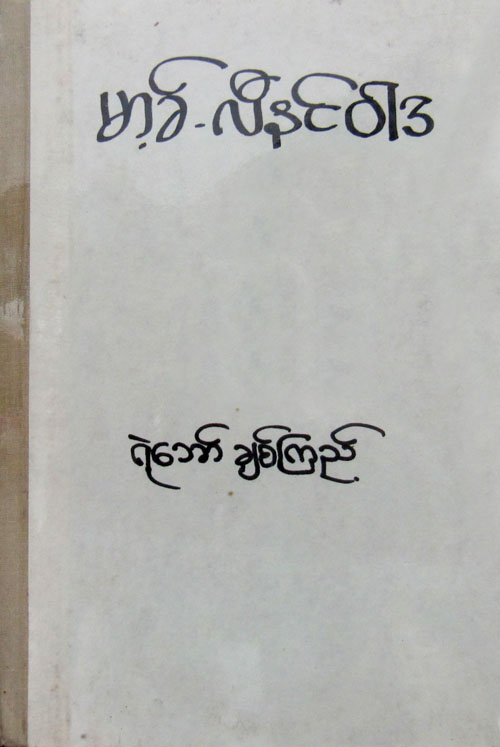 မာ့ခ်-လီနင်ဝါဒ
ရဲဘော် ချစ်ကြည်